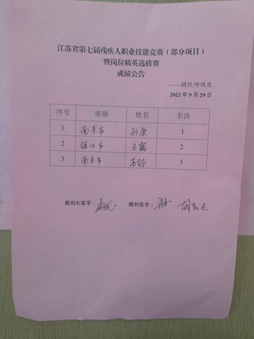 江苏省第七届残疾人职业技能竞赛（部分项目）
暨岗位精英选拔赛
成绩公告
项目
2022年9月29日
序号 市别 姓名 名次
1 南京市 孙康 1
2 镇江市 2
3 南京市 3
裁判长签字： 裁判签字：